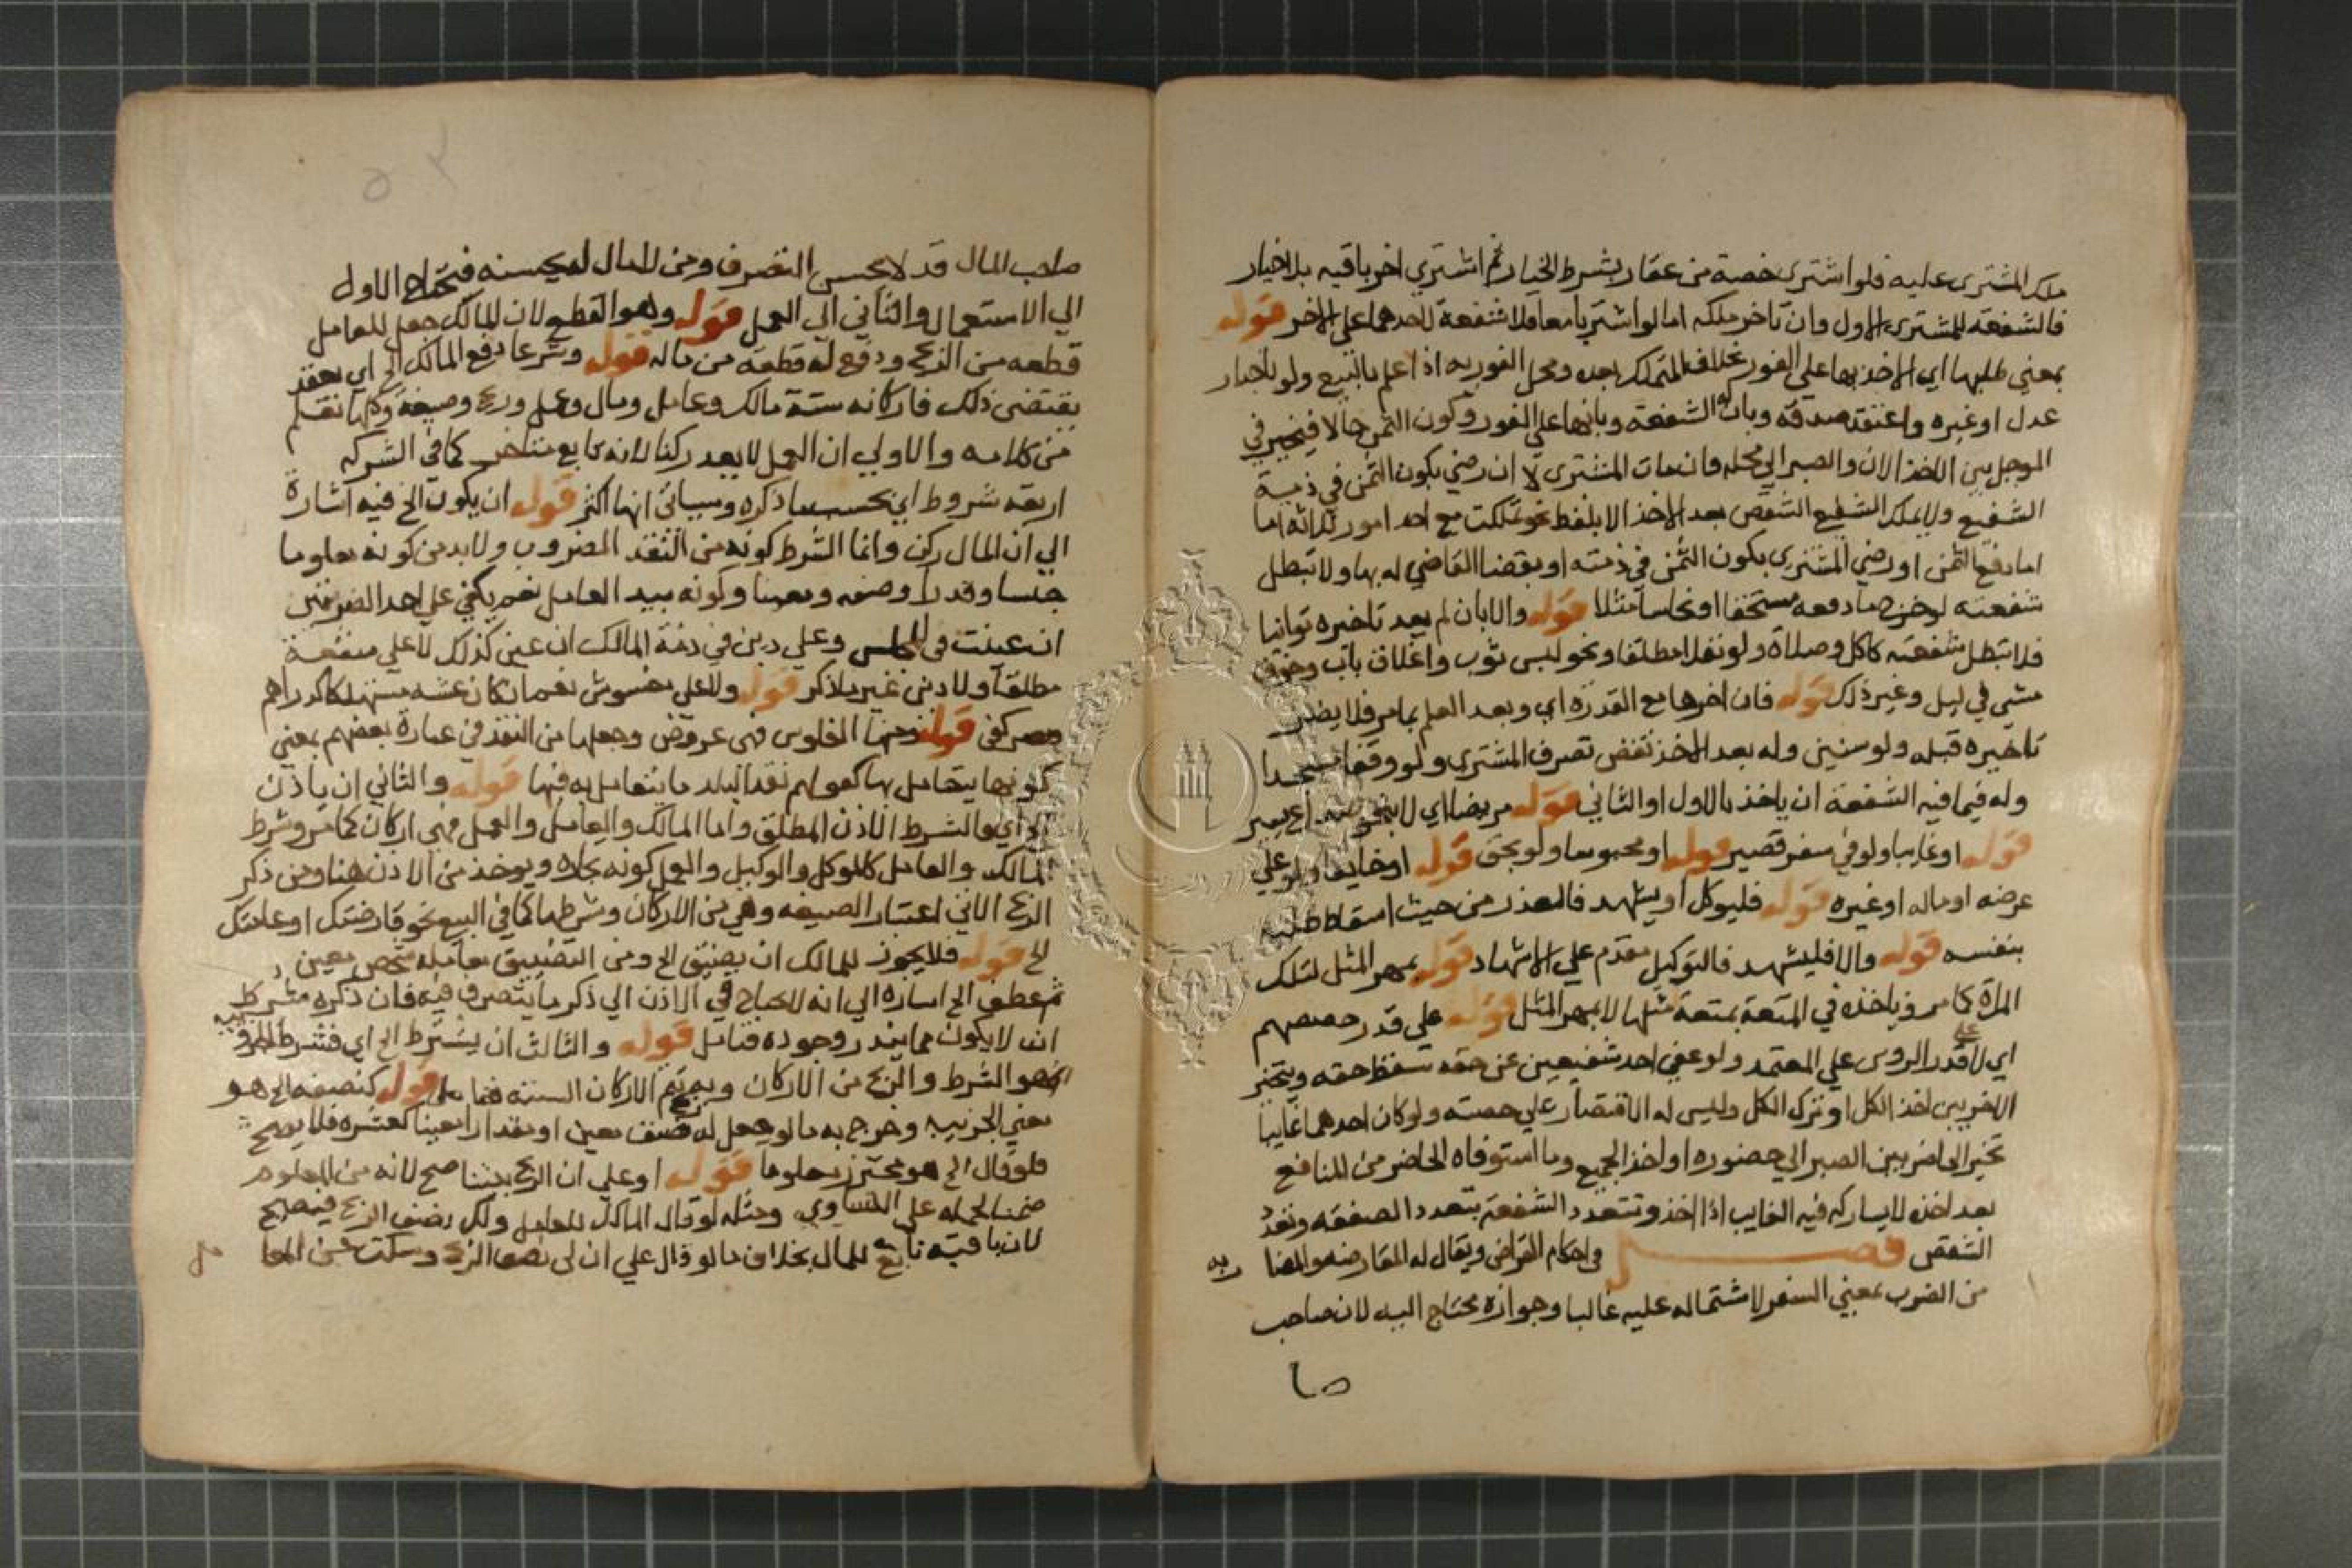 ملك المشترى عليه فلو اشترى حصة من عقار بشرط الخيار ثم اشتري اخر باقيه بلا خيار
فالشفعة للمشترى الاول وان تاخر ملكه اما لو اشتريا معا فلا شفعة لاحدهما على الاخر قوله
بمعني طلبها اي الاخذ بها على الفور بخلاف التملك بعده ومحل الفورية اذا علم بالبيع ولو باخبار
عدل او غيره واعتقد صدقه وبان له الشفعة وبانها علي الفور وكون الثمن حالا فيتخير في
الموجل بين الاخذ الان والصبر الي محله وان مات المشترى لا ان رضي بكون الثمن في ذمة
الشفيع ولا يملك الشفيع الشقص بعد الاخذ الا بلفظ نحو تملكت مع احد امور ثلاثة اما
اما دفع الثمن او رضي المشترى بكون الثمن في ذمته او بقضا القاضي له بها ولا تبطل
شفعته لو خرج ما دفعه مستحقا او نحاسا مثلا قوله والا بان لم يعد تاخيره توانيا
فلا تبطل شفعته كاكل وصلاة ولو نفلا مطلقا ونحو لبس ثوب واغلاق باب وخوف
مشي في ليل وغير ذلك قوله فان اخرها مع القدرة اي وبعد العلم بما مر فلا يضر
تاخيره قبله ولو سنين وله بعد الاخذ نقض تصرف المشترى ولو وقفا مسجدا
وله فيما فيه الشفعة ان ياخذ بالاول او الثاني قوله مريضا اي لا بنحو
قوله او غايبا ولو في سفر قصير قوله او محبوسا ولو بحق قوله او خايفا ولو علي
عرضه او ماله او غيره قوله فليوكل او يشهد فالعذر من حيث اسقاط طلبه
بنفسه قوله والا فليشهد فالتوكيل مقدم علي الاشهاد قوله بمهر المثل لتلك
المراة كما مر وياخذه في المتعة بمتعة مثلها لا بمهر المثل قوله علي قدر حصصهم
اي لا علي قدر الروس علي المعتمد ولو عفي احد شفيعين عن حقه سقط حقه ويتخير
الاخر بين اخذ الكل او ترك الكل وليس له الاقتصار علي حصته ولو كان احدهما غايبا
تخير الحاضر بين الصبر الي حضوره او اخذ الجميع وما استوفاه الحاضر من المنافع
بعد اخذه لا يشاركه فيه الغايب اذا اخذ وتتعدد الشفعة بتعدد الصفقة وتعدد
الشقص فصل في احكام القراض ويقال له المقارضه والمضا ربه
من الضرب بمعني السفر لاشتماله عليه غالبا وجوازه محتاج اليه لان صاحب
صا
صاحب المال قد لا يحسن التصرف ومن لا مال له يحسنه فيحتاج الاول
الي الاستعمال والثاني الي العمل قوله وهو القطع لان المالك جعل للعامل
قطعه من الربح ودفع له قطعة من ماله قوله وشرعا دفع المالك الخ اي بعقد
يقتضى ذلك فاركانه ستة مالك وعامل ومال وعمل وربح وصيغة وكلها تعلم
من كلامه والاولي ان العمل لا يعد ركنا لانه تابع متاخر كما في الشركه
اربعة شروط اي بحسب ما ذكره وسياتي انها اكثر قوله ان يكون الخ فيه اشارة
الي ان المال ركن وانما الشرط كونه من النقد المضروب ولا بد من كونه معلوما
جنسا وقدرا وصفه ومعينا وكونه بيد العامل نعم يكفي علي احد الصرتين
ان عينت في المجلس وعلي دين في ذمة المالك ان عين كذلك لا علي منفعة
مطلقا ولا دين غير ما ذكر قوله ولا علي مغشوش نعم ان كان غشه مستهلكا كدراهم
مصر كفي قوله ومنها الفلوس فهي عروض وجعلها من النقد في عبارة بعضهم بمعني
كونها يتعامل بها كقولهم نقد البلد ما يتعامل به فيها قوله والثاني ان ياذن
الخ اي والشرط الاذن المطلق واما المالك والعامل والعمل فهي اركان كما مر وشرط
المالك والعامل كالموكل والوكيل والعمل كونه تجاره ويوخذ من الاذن هنا ومن ذكر
الربح الاتي اعتبار الصيغه وهي من الاركان وشرطها كما في البيع نحو قارضتك او عاملتك
الخ قوله فلا يجوز للمالك ان يضيق الخ ومن التضييق معاملة شخص معين
ثم عطف الخ اشارة الي انه لا يحتاج في الاذن الي ذكر ما يتصرف فيه فان ذكره شرط
ان لا يكون مما يندر وجوده فتامل قوله والثالث ان يشترط الخ اي فشرط
هو الشرط والربح من الاركان وبه تتم الاركان الستة قوله كنصفه الخ هو
معني الجزييه وخرج به ما لو جعل له صنف معين او مقدارا معينا كعشره فلا يصح
فلو قال الخ هو محترز معلوما قوله او علي ان الربح بيننا صح لانه من المعلوم
ضمنا لحمله علي التساوي ومثله لو قال المالك للعامل ولك نصف الربح فيصح
لان باقيه تابع للمال بخلاف ما لو قال علي ان لي نصف الربح وسكت عن العا مل